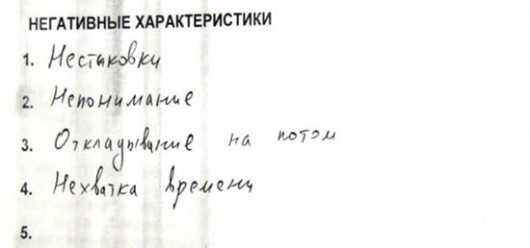 НЕГАТИВНЫЕ ХАРАКТЕРИСТИКИ
1. Нестыковки
2. Непонимание
3. Откладывание на потом
4. Нехватка времени
5.